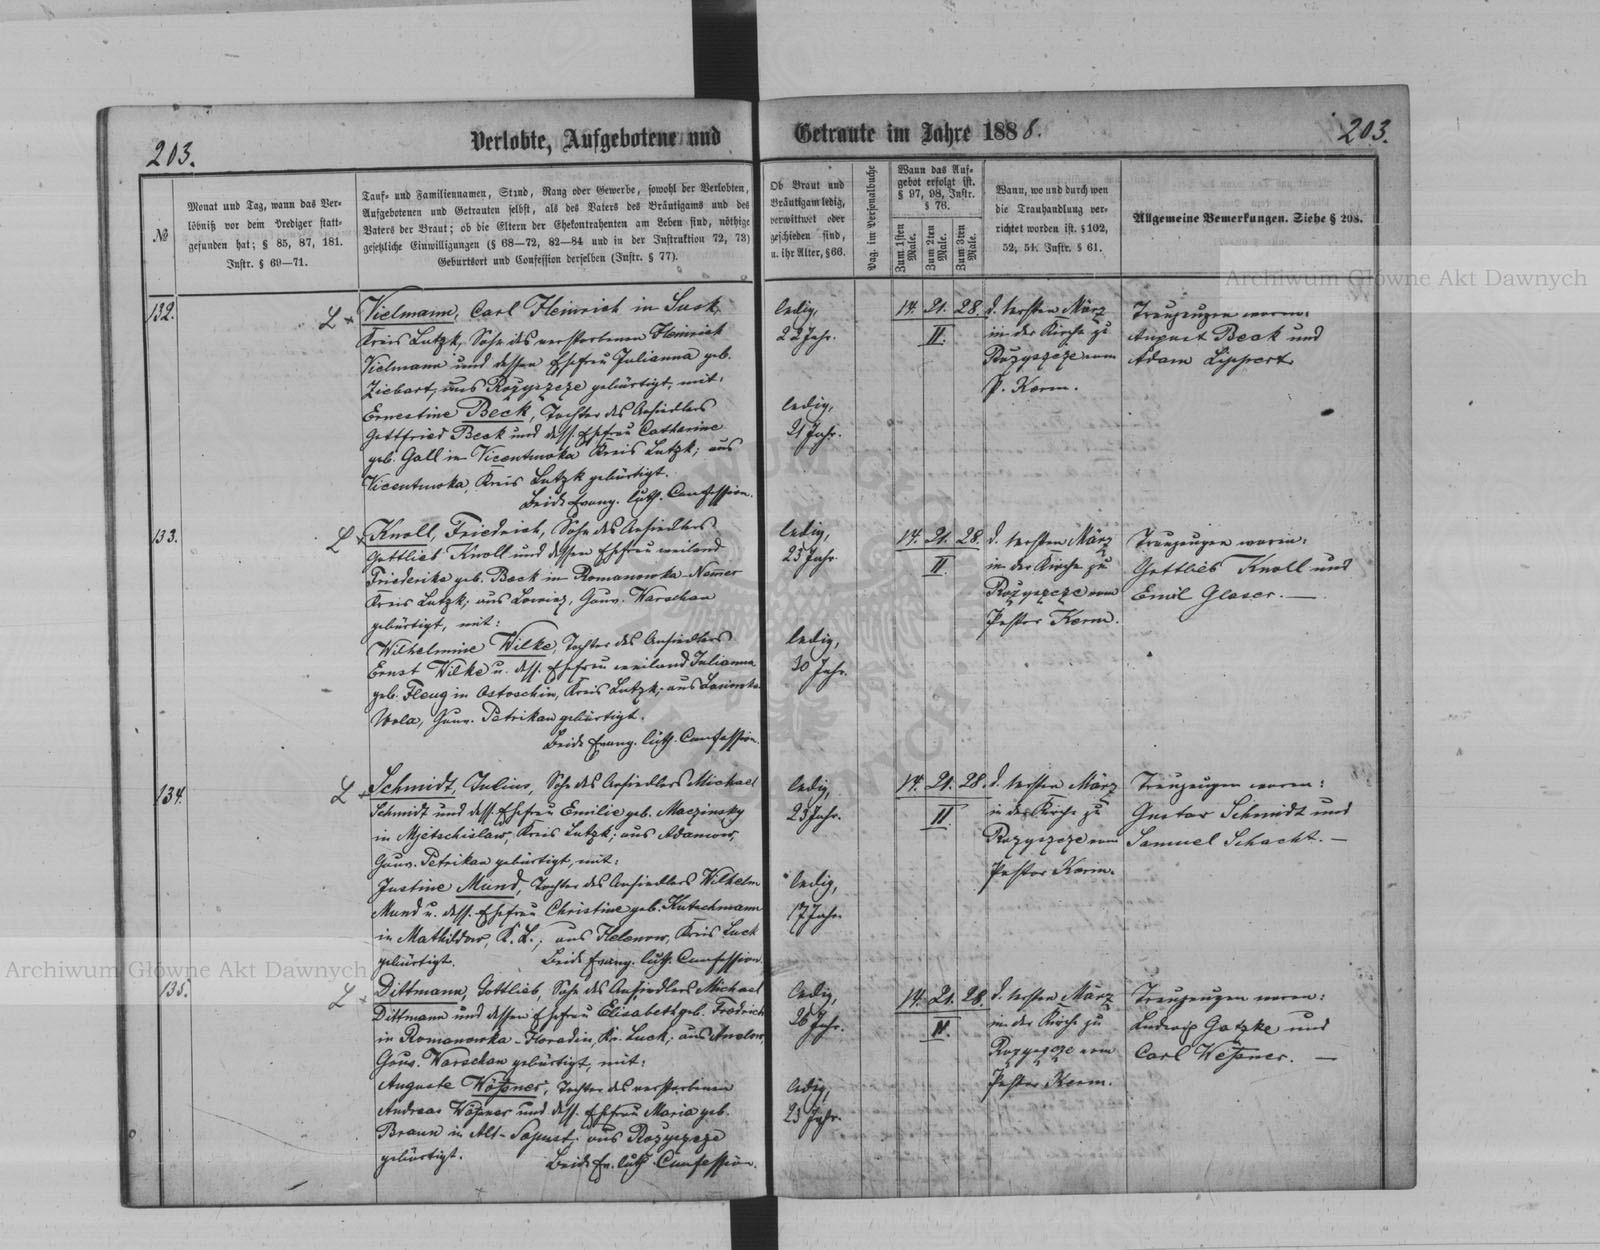 203.
Verlobte, Aufgebotene und
Getraute im Jahre 1888.
203.
№
Monat und Tag, wann das Ver-
löbniß vor dem Prediger statt-
gefunden hat; § 85, 87, 181.
Instr. § 69—71.
Tauf- und Familiennamen, Stand, Rang oder Gewerbe, sowohl der Verlobten,
Aufgebotenen und Getrauten selbst, als des Vaters des Bräutigams und des
Vaters der Braut; ob die Eltern der Ehekontrahenten am Leben sind, nöthige
gesetzliche Einwilligungen (§ 68—72, 82—84 und in der Instruktion 72, 73)
Geburtsort und Confession derselben (Instr. § 77).
Ob Braut und
Bräutigam ledig,
verwittwet oder
geschieden sind,
u. ihr Alter, § 66.
Pag. im Personalbuche
Wann das Auf-
gebot erfolgt ist.
§ 97, 98, Instr.
§ 76.
Zum 1sten Male.
Zum 2ten Male.
Zum 3ten Male.
Wann, wo und durch wen
die Trauhandlung ver-
richtet worden ist. § 102,
52, 54. Instr. § 61.
Allgemeine Bemerkungen. Siehe § 208.
132.
Vielmann, Carl Heinrich in Susk,
Kreis Lutzk, Sohn des verstorbenen Heinrich
Vielmann und dessen Ehefrau Julianna geb.
Ziebart, aus Rozyszcze gebürtigt, mit:
Ernestine Beck, Tochter des Ansiedlers
Gottfried Beck und dess. Ehefrau Catharine
geb. Gall in Kreis Lutzk; aus
Kreis Lutzk gebürtigt.
Beide Evang. luth. Confession.
ledig,
22 Jahr.
ledig,
21 Jahr.
14. 21. 28.
II.
März
in der Kirche zu
Rozyszcze vom
P. Kerm.
Trauzeugen waren:
August Beck und
Adam Lippert
133.
Knoll, Friedrich, Sohn des Ansiedlers
Gottlieb Knoll und dessen Ehefrau weiland
Friederike geb. Beck in Romanowka
Kreis Lutzk; aus Gouv. Warschau
gebürtigt, mit:
Wilhelmine Wilke, Tochter des Ansiedlers
Ernst Wilke u. dess. Ehefrau weiland Julianna
geb. in Ostroschin, Kreis Lutzk; aus
Wola, Gouv. Petrikau gebürtigt.
Beide Evang. luth. Confession.
ledig,
25 Jahr
ledig,
30 Jahr.
14. 21. 28.
II.
März
in der Kirche zu
Rozyszcze vom
Pastor Kerm.
Trauzeugen waren:
Gottlieb Knoll und
Emil Glaser. —
134.
Schmidt, Julius, Sohn des Ansiedlers Michael
Schmidt und dess. Ehefrau Emilie geb. Maczinsky
in Mjetschislaw, Kreis Lutzk; aus Adamow,
Gouv. Petrikau gebürtigt, mit:
Justine Mund, Tochter des Ansiedlers Wilhelm
Mund u. dess. Ehefrau Christine geb. Kutschmann
in Mathildow, K. L.; aus Helenow, Kreis Luck
gebürtigt. Beide Evang. luth. Confession.
ledig,
23 Jahr.
ledig,
17 Jahr.
14. 21. 28.
II.
März
in der Kirche zu
Rozyszcze vom
Pastor Kerm.
Trauzeugen waren:
Gustav Schmidt und
Samuel Schacht. —
135.
Dittmann, Gottlieb, Sohn des Ansiedlers Michael
Dittmann und dessen Ehefrau Elisabeth geb. Fredrich
in Romanowka - Kr. Luck; aus
Gouv. Warschau gebürtigt, mit:
Auguste Tochter des verstorbenen
Andreas und dess. Ehefrau Maria geb.
Braun in Alt- aus Rozyszcze
gebürtigt. Beide Ev. luth Confession.
ledig,
26 Jahr.
ledig,
23 Jahr.
14. 21. 28.
II.
März
in der Kirche zu
Rozyszcze vom
Pastor Kerm.
Trauzeugen waren:
Ludwig Gatzke und
Carl —
Archiwum Główne Akt Dawnych
Archiwum Główne Akt Dawnych